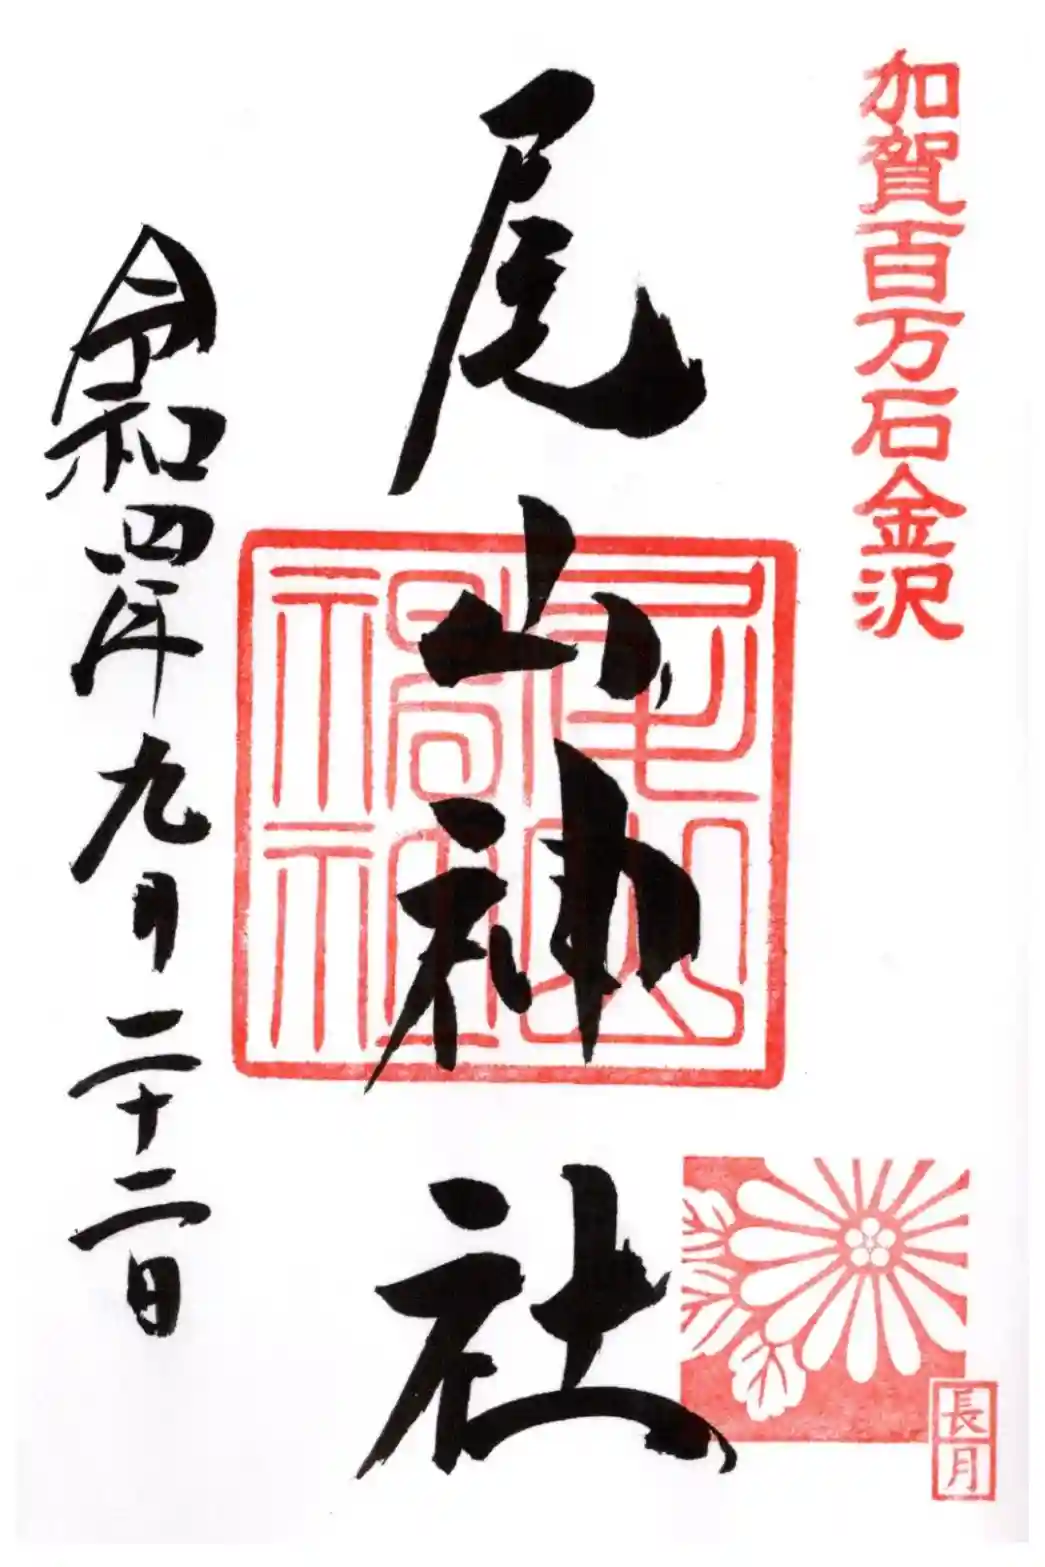 加賀百万石金沢
尾山神社
尾山神社
令和四年九月二十二日
長月